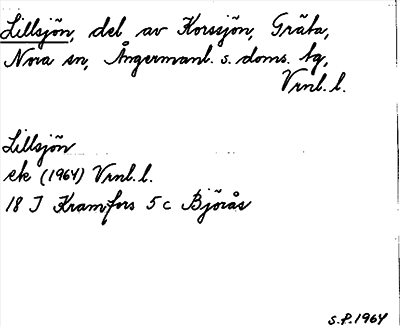 Lillsjön, del av Korssjön, Gräta,
Nora sn, Ångermanl. s. doms. tg,
Vrnl. l.
Lillsjön
ek (1964) Vrnl. l.
18 J Kramfors 5 c Björås
S.P. 1964